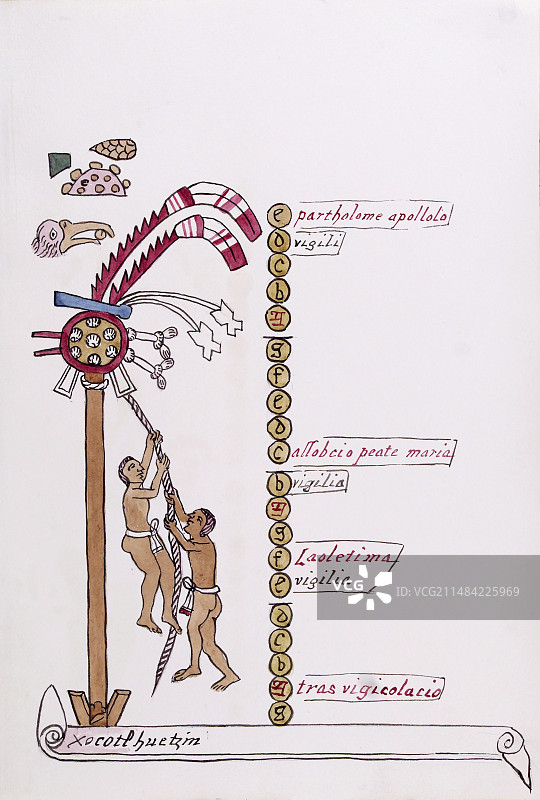 e partholome apollolo
d vigili
c
b
A
g
f
e
d
c allobcio peate maria
b vigilia
A
g
f Laoletima
e vigilia
d
c
b
A tras vigicolacio
g
xocotlhuetzin
VCG
VCG.COM
ID: VCG211484225969